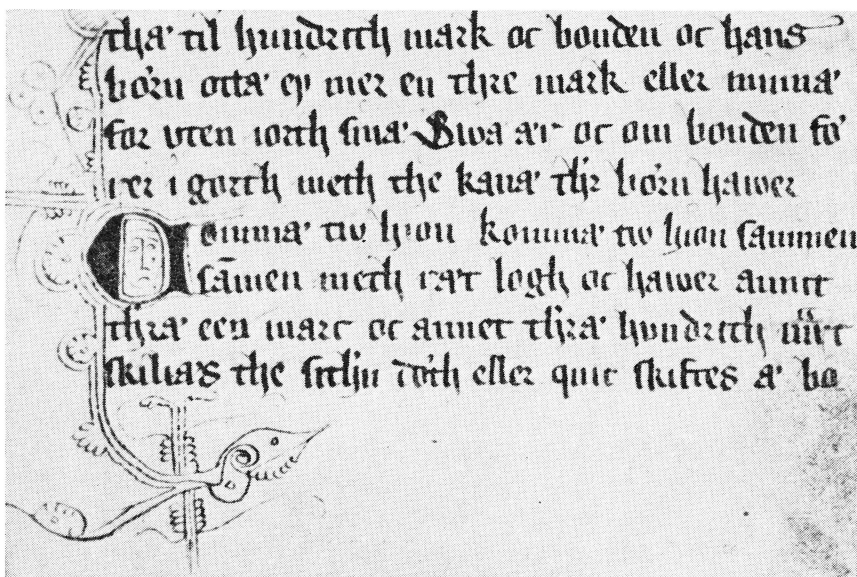 tha' til hundreth mark oc bonden oc hans
børn otta' ey mer en thre mark eller minna'
for vten iorth sina' Swa ær oc om bonden fø
rer i gorth meth the kana' thr børn hawer
omma' tw hion komma' tw hion sammen
sāmen meth ræt logh oc hawer annet
thera' een marc oc annet thera' hundreth
skilia's the sithen døth eller quit skiftes a' bo